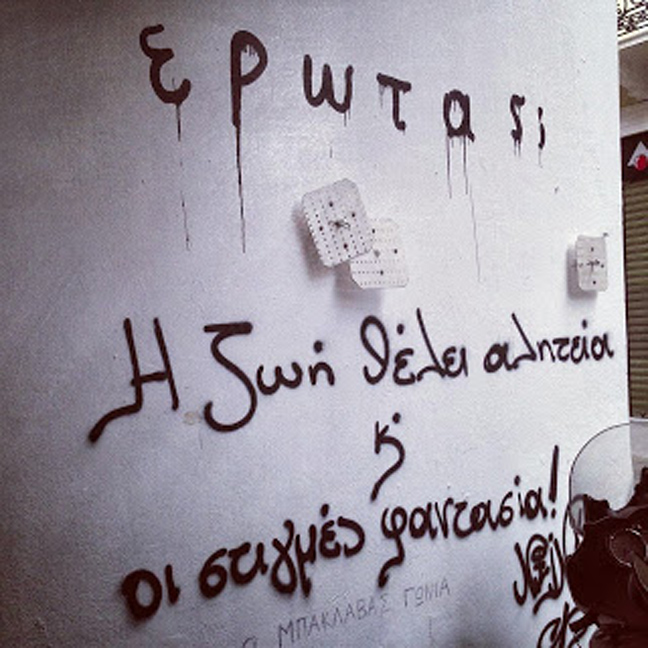 ερωτας;
Η ζωή θέλει αλητεία
κ'
οι στιγμές φαντασία!
ΜΠΑΚΛΑΒΑΣ ΓΩΝΙΑ